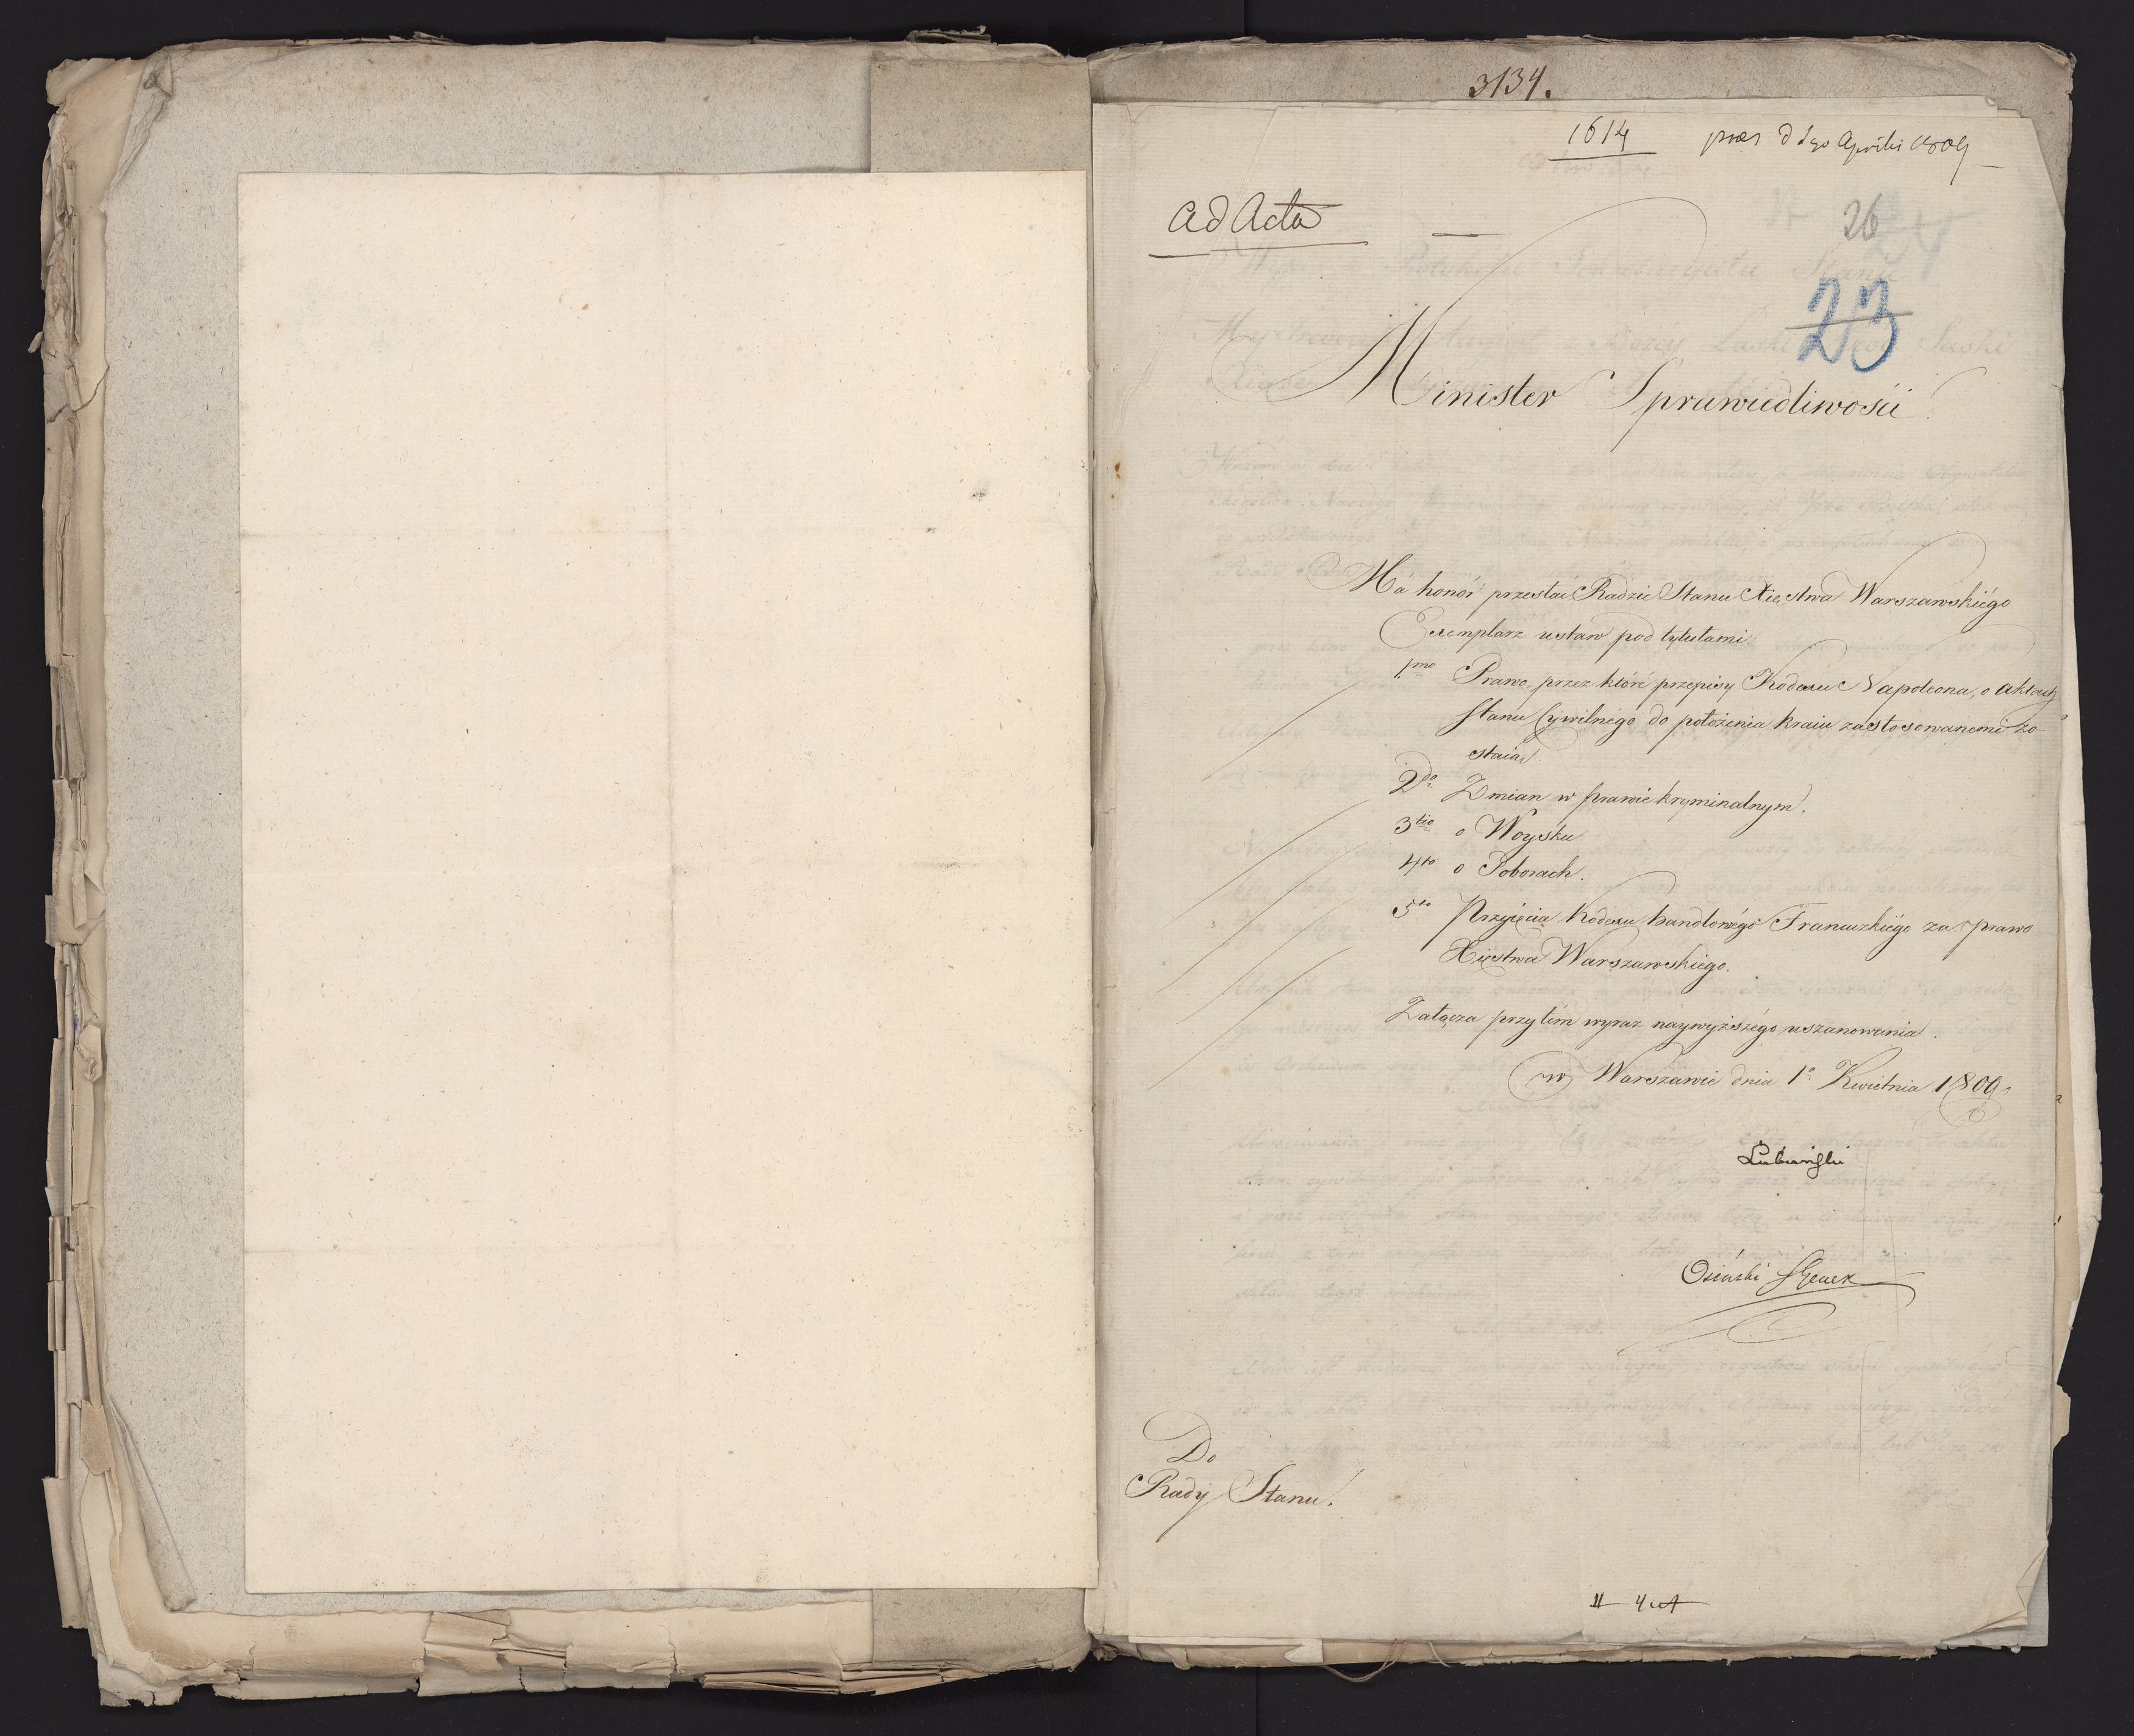 3134.
1614 præs d 2go Aprilis 1809
Ad Acta
26
24
23
Minister Sprawiedliwości
Má honór przesłać Radzie Stanu Xięstwa Warszawskiégo
Exemplarz ustaw pod tytułami
1mo Prawo, przez któré przepisy Kodexu Napoleona, o aktach
Stanu Cywilnégo do położenia kraiu zastosowanemi zo-
staią.
2do Zmian w prawie kryminalnym.
3tio o Woysku
4to o Poborach.
5to Przyięcia Kodexu handlowégo Francuzkiégo za prawo
Xięstwa Warszawskiégo.
Załącza przytém wyraz naywyższégo uszanowania.
w Warszawie dnia 1o Kwietnia 1809.
Łubieński
Osiński
Do
Rady Stanu.